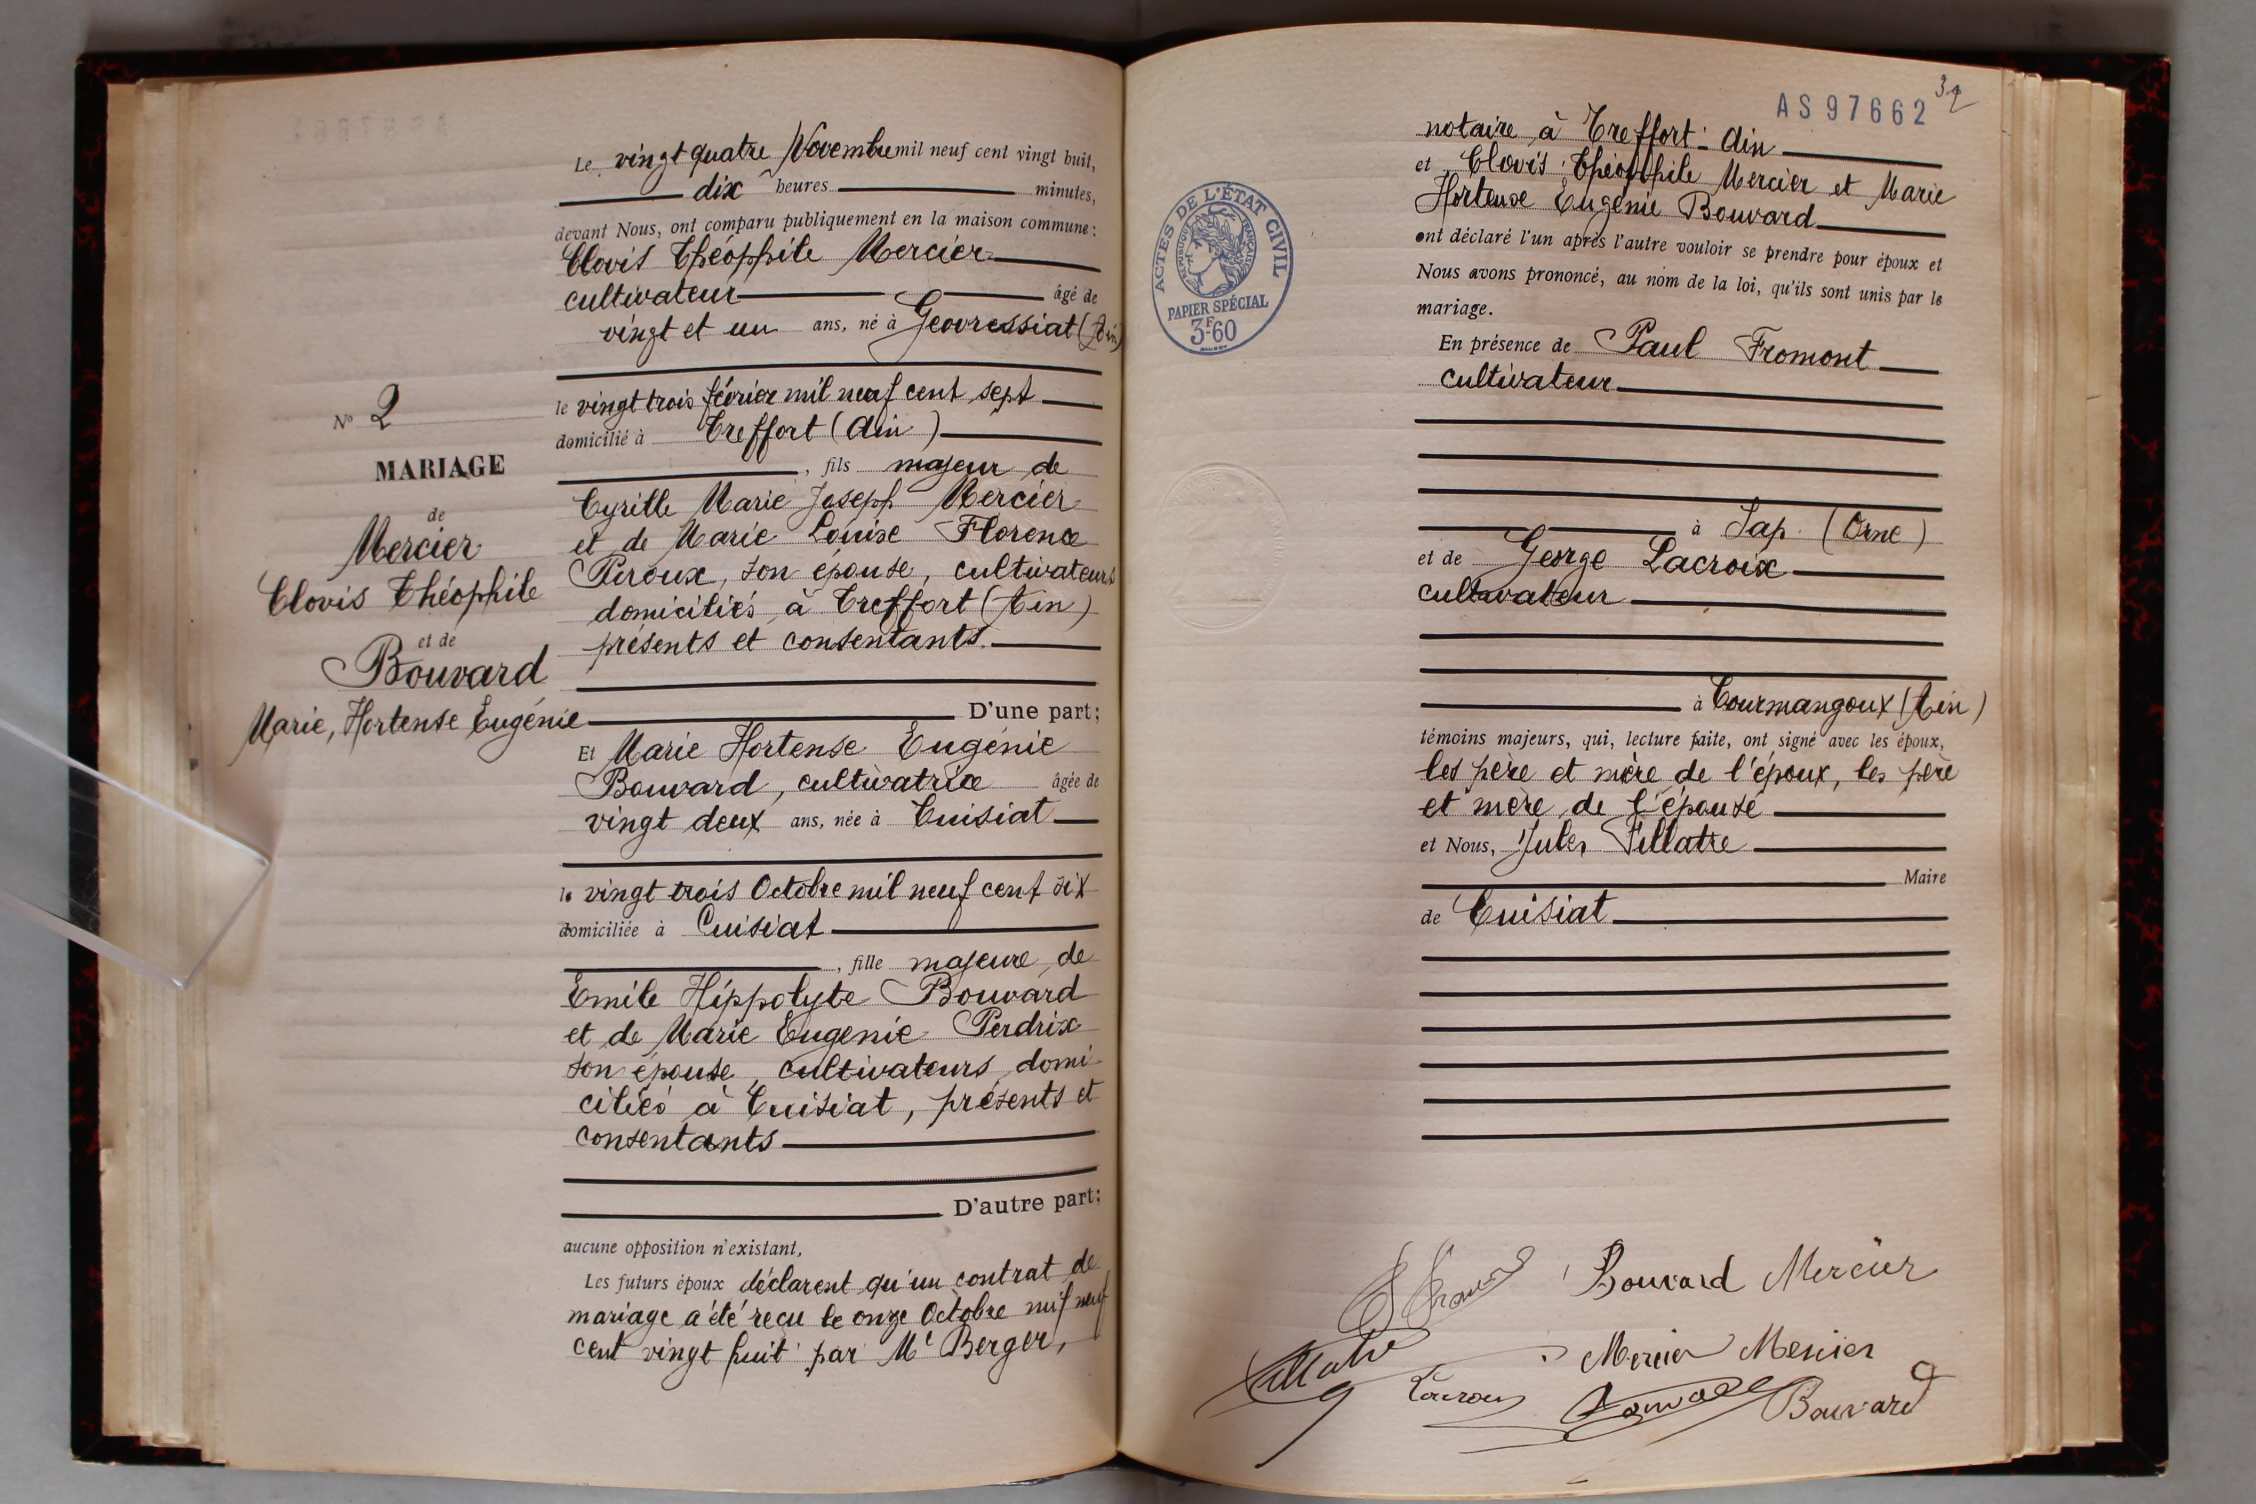 Le vingt quatre Novembre mil neuf cent vingt huit,
dix heures minutes,
devant Nous, ont comparu publiquement en la maison commune:
Clovis Théophile Mercier
cultivateur âgé de
vingt et un ans, né à Geovressiat (Ain)
le vingt trois février mil neuf cent sept
domicilié à Treffort (Ain)
, fils majeur de
Cyrille Marie Joseph Mercier
et de Marie Louise Florence
Peroux, son épouse, cultivateurs
domiciliés à Treffort (Ain)
présents et consentants.
D'une part;
Et Marie Hortense Eugénie
Bouvard, cultivatrice âgée de
vingt deux ans, née à Cuisiat
le vingt trois Octobre mil neuf cent six
domiciliée à Cuisiat
, fille majeure de
Emile Hippolyte Bouvard
et de Marie Eugenie Perdrix
son épouse, cultivateurs, domi-
ciliés à Cuisiat, présents et
consentants
D'autre part;
aucune opposition n'existant,
Les futurs époux déclarent qu'un contrat de
mariage a été reçu le onze Octobre mil neuf
cent vingt huit par Me Berger,
No 2
MARIAGE
de
Mercier
Clovis Théophile
et de
Bouvard
Marie, Hortense Eugénie
AS 97662
32
ACTES DE L'ÉTAT CIVIL
RÉPUBLIQUE FRANÇAISE
PAPIER SPÉCIAL
3F60
notaire à Treffort - Ain
et Clovis Théophile Mercier et Marie
Hortense Eugénie Bouvard
ont déclaré l'un après l'autre vouloir se prendre pour époux et
Nous avons prononcé, au nom de la loi, qu'ils sont unis par le
mariage.
En présence de Paul Fromont
cultivateur
à Sap (Orne)
et de George Lacroix
cultivateur
à Courmangoux (Ain)
témoins majeurs, qui, lecture faite, ont signé avec les époux,
les père et mère de l'époux, les père
et mère de l'épouse
et Nous, Jules Fillatre
Maire
de Cuisiat
Bouvard Mercier
Mercier Mercier
Bouvard